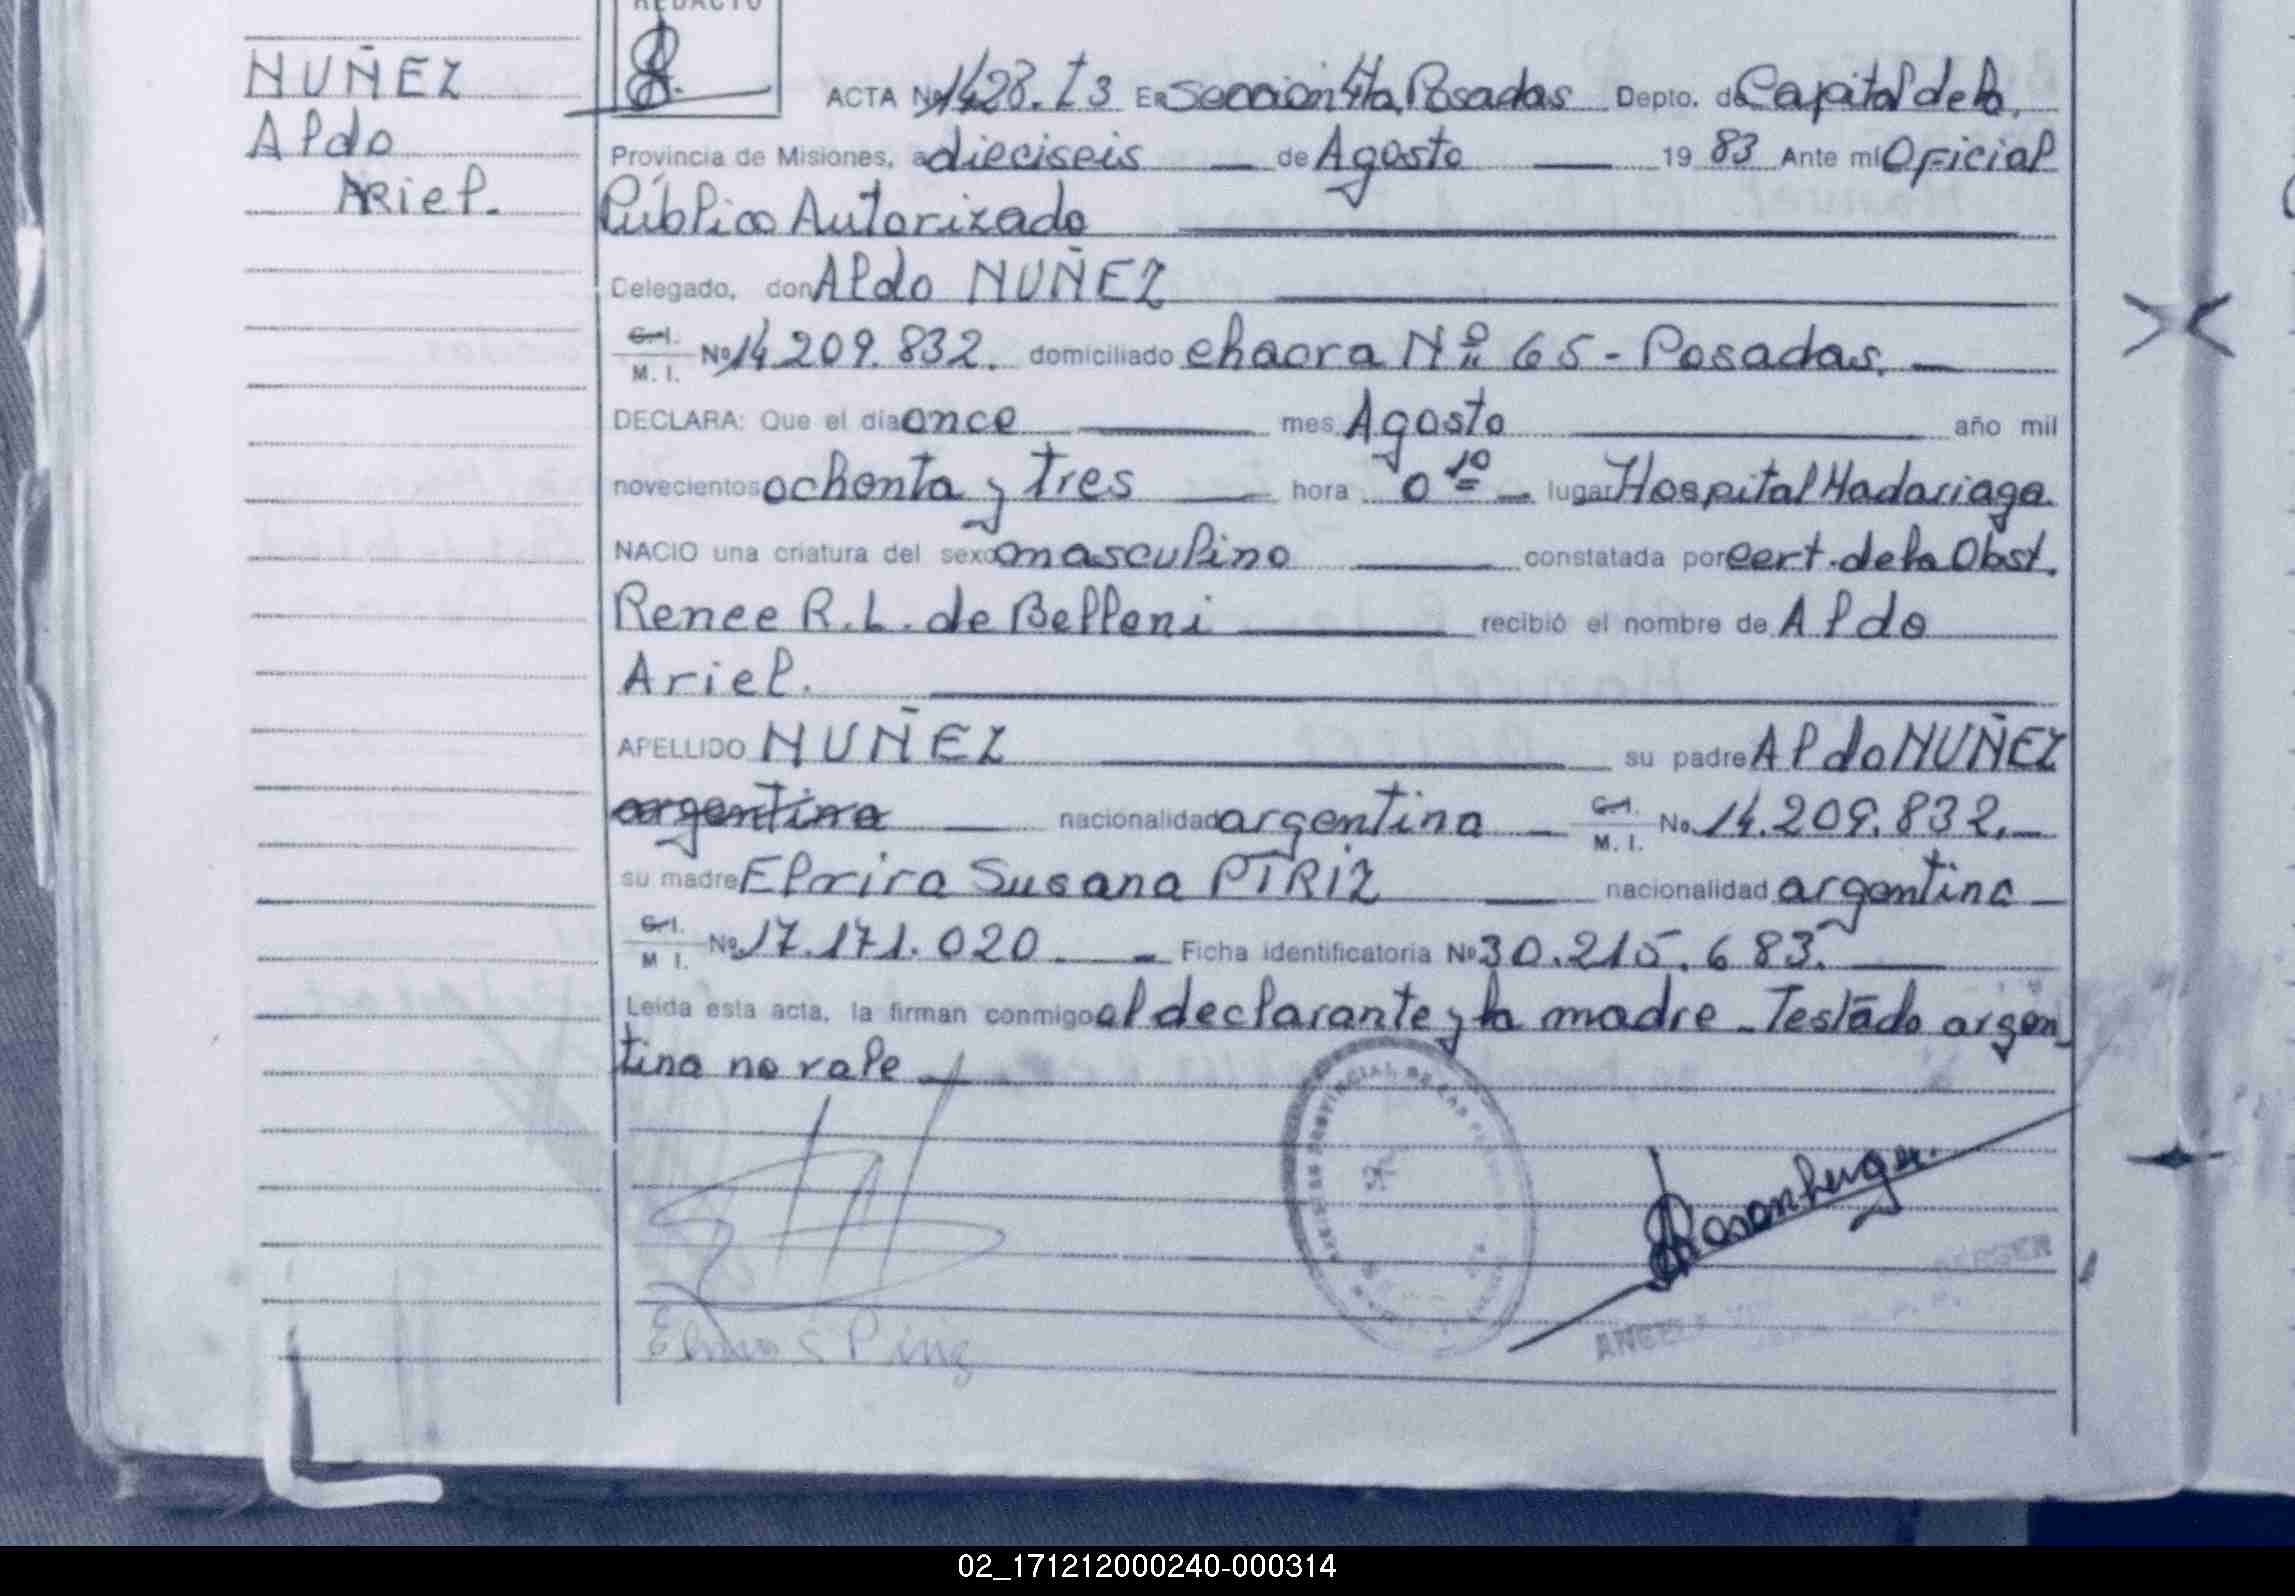 REDACTO
NUÑEZ
Aldo
Ariel.
ACTA Nº 1428. T3 En Sección 4ta. Posadas Depto. de Capital de la
Provincia de Misiones, a dieciseis de Agosto 19 83 Ante mí Oficial
Público Autorizado
Delegado, don Aldo NUÑEZ
C.I.
M. I. Nº 14.209.832. domiciliado chacra Nº 65 - Posadas.
DECLARA: Que el día once mes Agosto año mil
novecientos ochenta y tres hora 0 10 lugar Hospital Madariaga
NACIO una criatura del sexo masculino constatada por cert. de la Obst.
Renee R. L. de Belloni recibió el nombre de Aldo
Ariel.
APELLIDO NUÑEZ su padre Aldo NUÑEZ
argentina nacionalidad argentina C.I. M. I. No. 14.209.832.
su madre Susana nacionalidad argentina
C.I.
M I. Nº 17.171.020 Ficha identificatoria Nº 30.215.683.
Leída esta acta, la firman conmigo el declarante y la madre - Testado argen
tina no vale
02_171212000240-000314